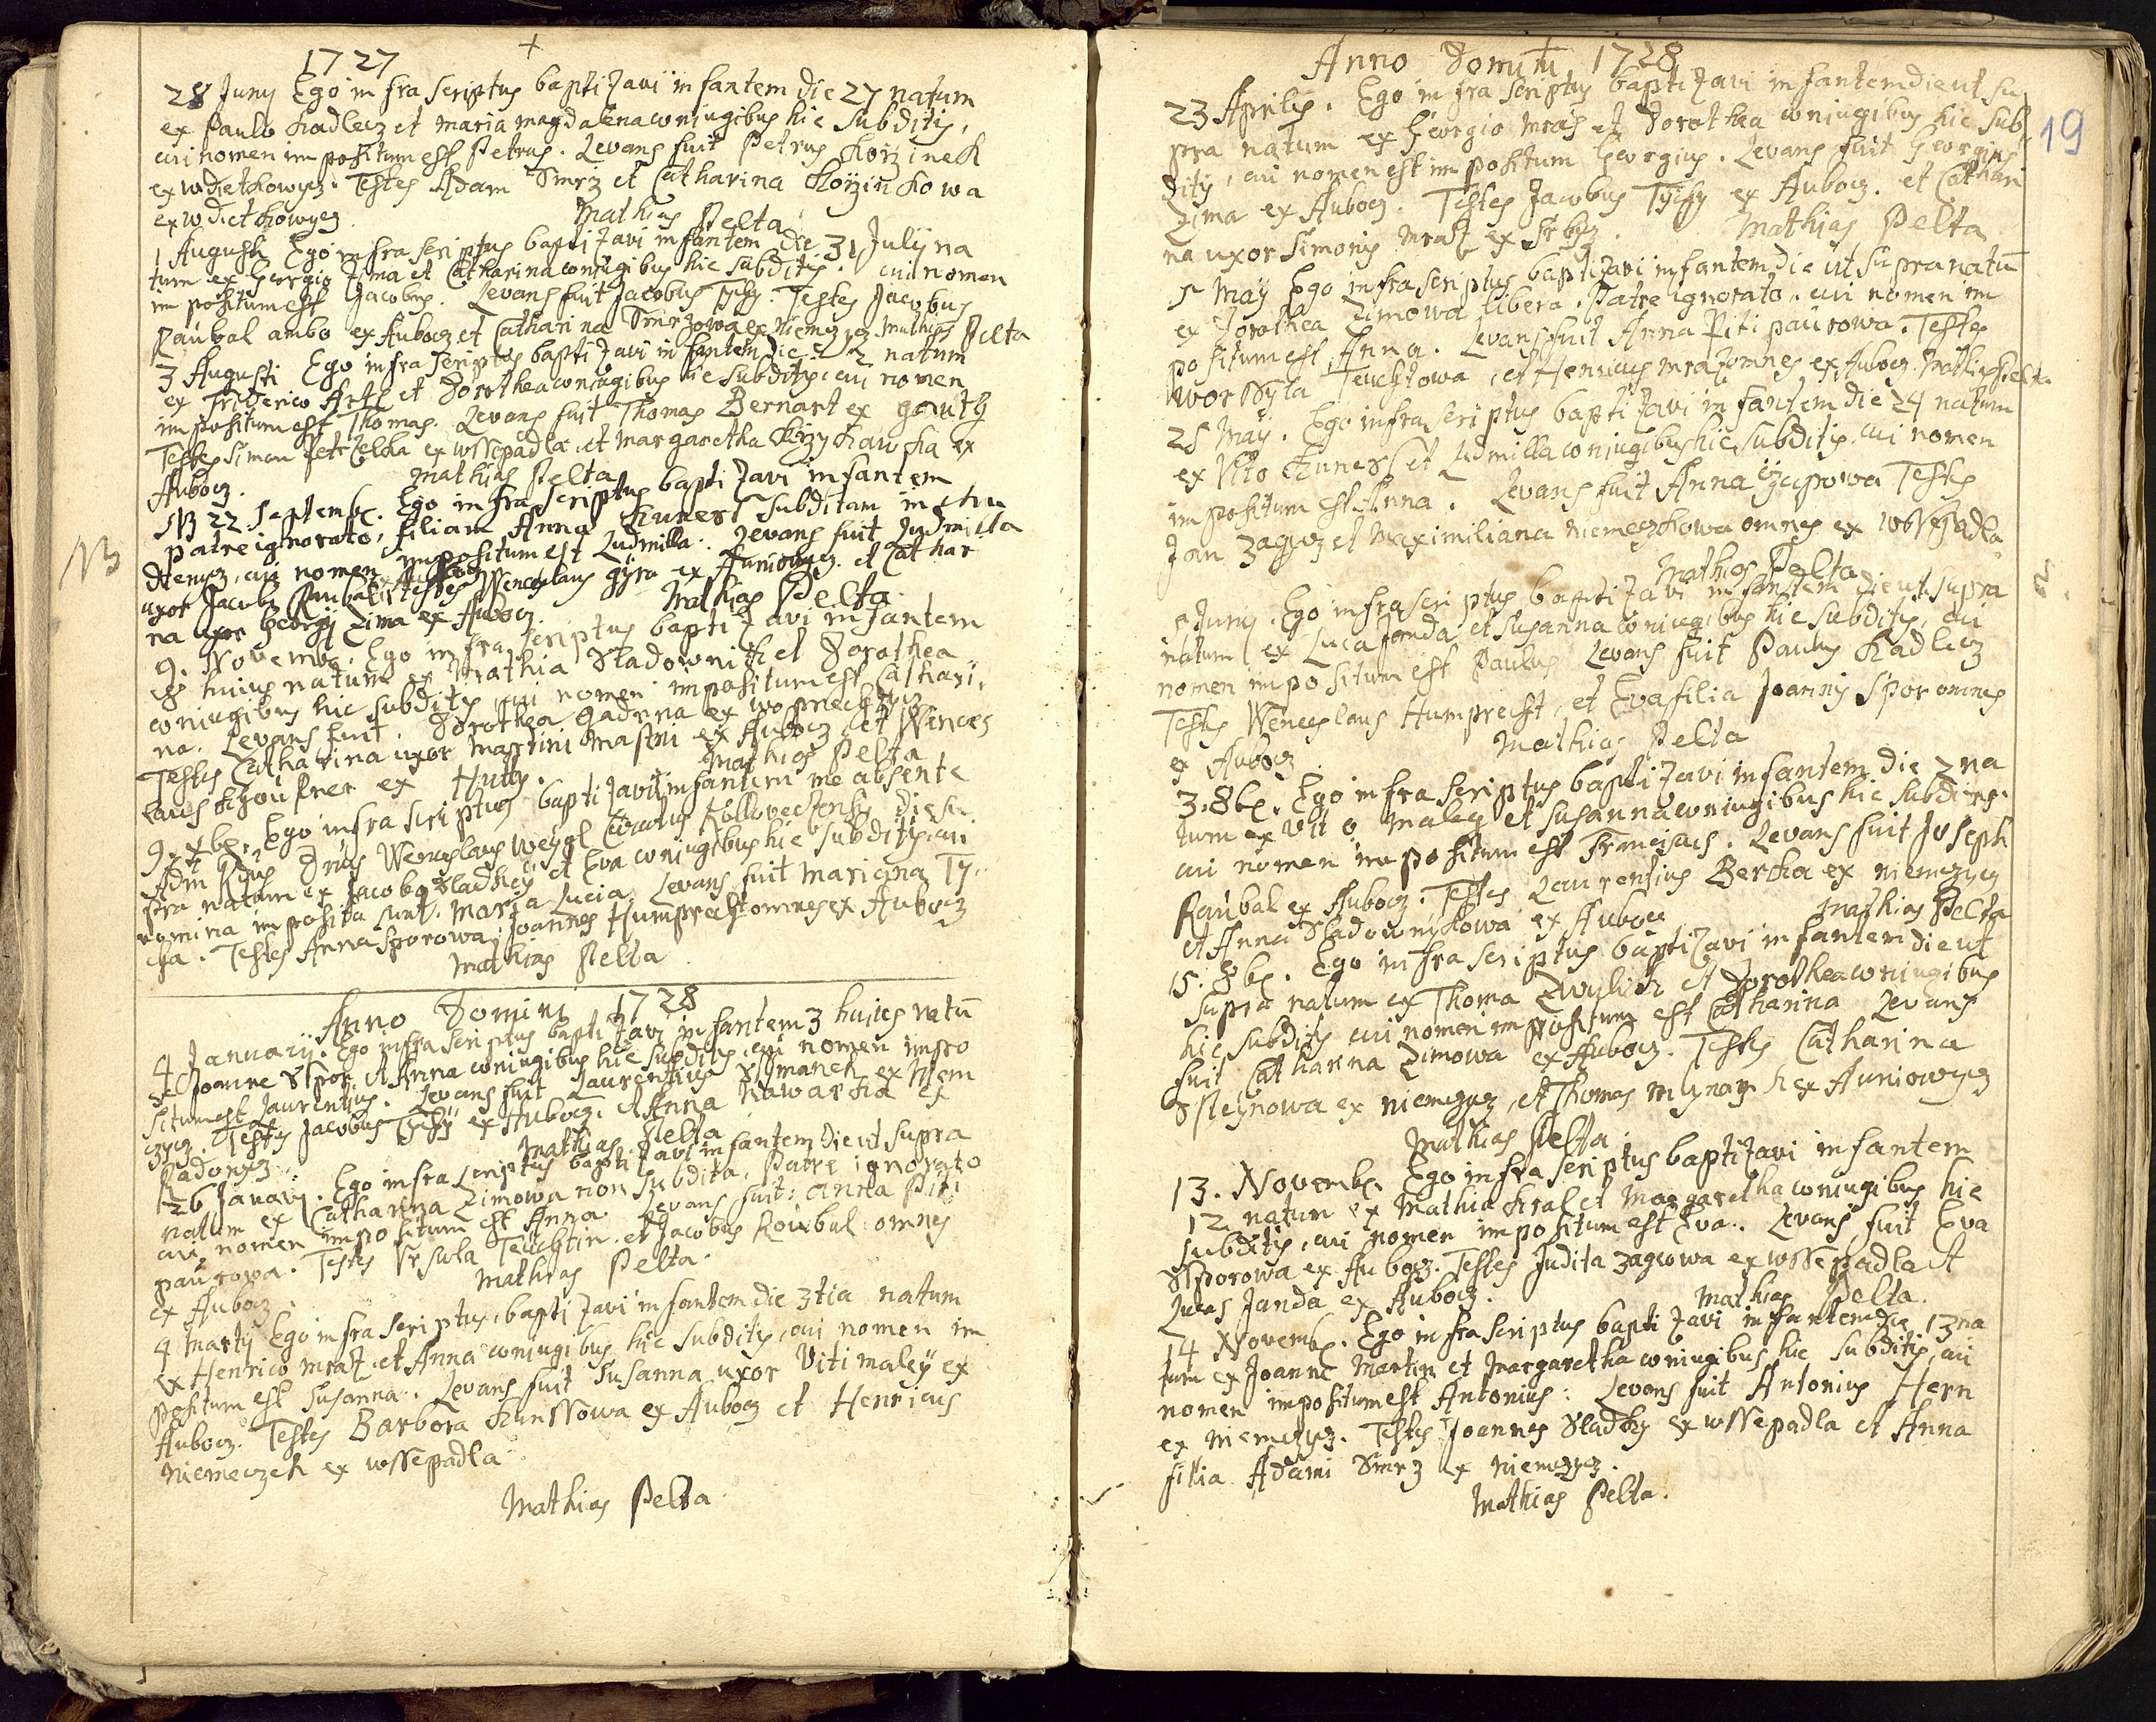 1727
28 Juny Ego infra scriptus baptizavi infantem die 27 natum
ex Paulo Kadlecz et Maria Magdalena coniugibus hic subditis,
cui nomen impositum est Petrus. Levans fuit Petrus Korzinek
ex Wdietkowycz. Testes Adam Smrz et Catharina
ex Wdietkowycz
Mathias Pelta
1 Augusti Ego infra scriptus baptizavi infantem die 31 July na
tum ex Georgio Zima et Catharina coniugibus hic subditis. cui nomen
impositum est Jacobus. Levans fuit Jacobus Tichy. Testes Jacobus
Raubal ambo ex Aubocz et Catharina Smrzowa ex Niemczicz. Mathias Pelta
3 Augusti Ego infra scriptus baptizavi infantem die 2 natum
ex Friderico et Dorothea coniugibus hic subditis, cui nomen
impositum est Thomas. Levans fuit Thomas Bernart ex
Testes Simon ex Wssepadla. et Margaretha ex
Aubocz. Mathias Pelta
NB 22 Septemb. Ego infra scriptus baptizavi infantem
patre ignorato, filiam Anna Kuness subditam in Chu
denycz, cui nomen impositum est Ludmilla. Levans fuit Ludmilla
uxor Jacobi Raubal ex Aubocz Testes Wenceslaus ex Auniowycz. et Cathar
na uxor Georgy Zima ex Aubocz. Mathias Pelta
9. Novemb. Ego infra scriptus baptizavi infantem
huius natum ex Mathia Sladownik et Dorothea
coniugibus hic subditis, cui nomen impositum est Cathari
na. Levans fuit. Dorothea ex
Testes Catharina uxor Martini ex Aubocz et Wences
laus ex Mathias Pelta
9. Xb. Ego infra scriptus baptizavit infantem me absente
Adm Rdus Dnus Wenceslaus Weygl die su
pra natum ex Jacobo Sladkey et Eva coniugibus hic subditis, cui
nomina imposita sunt. Maria Lucia. Levans fuit Mariana Ty
cha. Testes Anna Sporowa, Joannes Humprecht omnes ex Aubocz
Mathias Pelta
Anno Domini 1728
4 January. Ego infra scriptus baptizavi infantem 3 huius natu
ex Joanne Sspor, et Anna coniugibus hic subditis, cui nomen impo
situm est Laurentius. Levans fuit Laurentius Ssimanek ex Niem
zycz. Testes Jacobus Tychy ex Aubocz. et Anna Kawarka ex
Radonycz. Mathias Pelta
26 January. Ego infra scriptus baptizavi infantem die ut supra
natum ex Catharina Zimowa non subdita, Patre ignorato
cui nomen impositum est Anna. Levans fuit: Anna Piti
paurowa. Testes Ursula Teuchtin. et Jacobus Roubal: omnes
ex Aubocz. Mathias Pelta.
4 Marty Ego infra scriptus, baptizavi infantem die 3tia natum
ex Henrico Mraz, et Anna coniugibus hic subditis, cui nomen im
positum est Susanna. Levans fuit Susanna uxor Viti Maley ex
Aubocz. Testes Barbora Kunssowa ex Aubocz et Henricus
Niemeczek ex Wssepadla
Mathias Pelta
NB
Anno Domini 1728
19
23 Aprilis. Ego infra scriptus baptizavi infantem die ut su
pra natum ex Georgio Mraz et Dorothea coniugibus hic sub
ditis, cui nomen est impositum Georgius. Levans fuit Georgius
Zima ex Aubocz. Testes Jacobus Tychy ex Aubocz. et Cathari
na uxor Simonis Mraz ex Srbycz. Mathias Pelta
5 May Ego infra scriptus baptizavi infantem die ut supra natu
ex Dorothea Zimowa libera. Patre ignorato. cui nomen im
positum est, Anna. Levans fuit Anna Piti paurowa. Testes
Worssyla Teuchtowa, et Henricus Mraz omnes ex Aubocz. Mathias Pelta
25 May. Ego infra scriptus baptizavi infantem die 24 natum
ex Vito Kuness et Ludmilla coniugibus hic subditis. cui nomen
impositum est Anna. Levans fuit Anna Testes
Jan Zagicz et Maximiliana Niemeczkowa omnes ex Wssepadla
Mathias Pelta
5 Juny. Ego infra scriptus baptizavi infantem die ut supra
natum ex Luca Janda, et Susanna coniugibus hic subditis, cui
nomen impositum est Paulus Levans fuit Paulus Kadlecz
Testes Wenceslaus Humprecht, et Eva filia Joannis Spor omnes
ex Aubocz Mathias Pelta
3. 8b. Ego infra scriptus baptizavi infantem die 2 na
tum ex Vito Maley et Susanna coniugibus hic subditis.
cui nomen impositum est Franciscus. Levans fuit Joseph
Raubal ex Aubocz. Testes Laurentius Bertka ex Niemczycz
et Anna Sladownykowa ex Aubocz Mathias Pelta
15. 8b. Ego infra scriptus baptizavi infantem die ut
supra natum ex Thoma et Dorothea coniugibus
hic subditis cui nomen impositum est Catharina Levans
fuit Catharina Zimowa ex Aubocz. Testes Catharina
ex Niemczycz, et Thomas ex Auniowycz
Mathias Pelta.
13. Novemb. Ego infra scriptus baptizavi infantem
12 natum ex Mathia Kral et Margaretha coniugibus hic
subditis, cui nomen impositum est Eva. Levans fuit Eva
Sporowa ex Aubocz. Testes Judita Zagicowa ex Wssepadla et
Lucas Janda ex Aubocz. Mathias Pelta.
14 Novemb. Ego infra scriptus baptizavi infantem die 13 na
tum ex Joanne Martin et Margaretha coniugibus hic subditis, cui
nomen impositum est Antonius: Levans fuit Antonius Hern
ex Niemczycz. Testes Joannes Sladky ex Wssepadla et Anna
filia Adami Smrz ex Niemczycz.
Mathias Pelta.